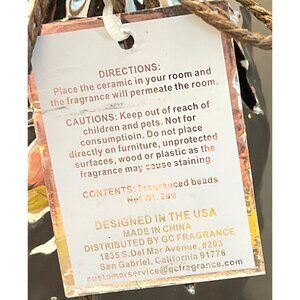 DIRECTIONS:
Place the ceramic in your room and
the fragrance will permeate the room.
CAUTIONS: Keep out of reach of
children and pets. Not for
consumptioin. Do not place
directly on furniture, unprotected
surfaces, wood or plastic as the
fragrance may cause staining.
CONTENTS: Fragranced beads
Net Wt. 20g
DESIGNED IN THE USA
MADE IN CHINA
DISTRIBUTED BY GC FRAGRANCE
1835 S.Del Mar Avenue, #203
San Gabriel, California 91776
customerservice@gcfragrance.com